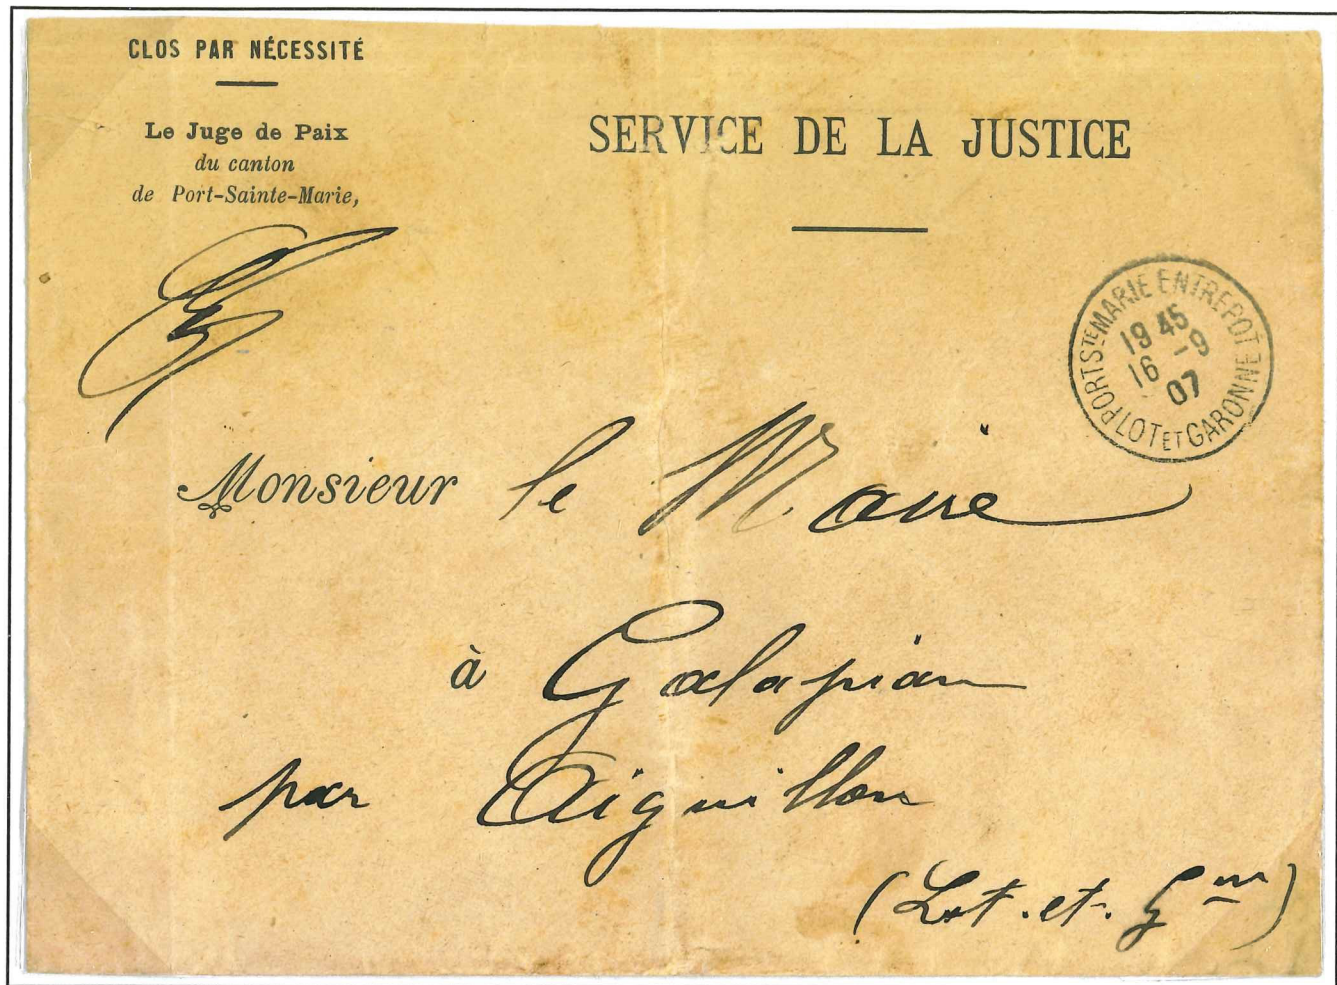 CLOS PAR NÉCESSITÉ
Le Juge de Paix
du canton
de Port-Sainte-Marie,
SERVICE DE LA JUSTICE
PORT STE MARIE ENTREPOT
19 45
16 -9
07
LOT ET GARONNE
Monsieur le Maire
à Galapian
par Aiguillon
(Lot.et.Gne)